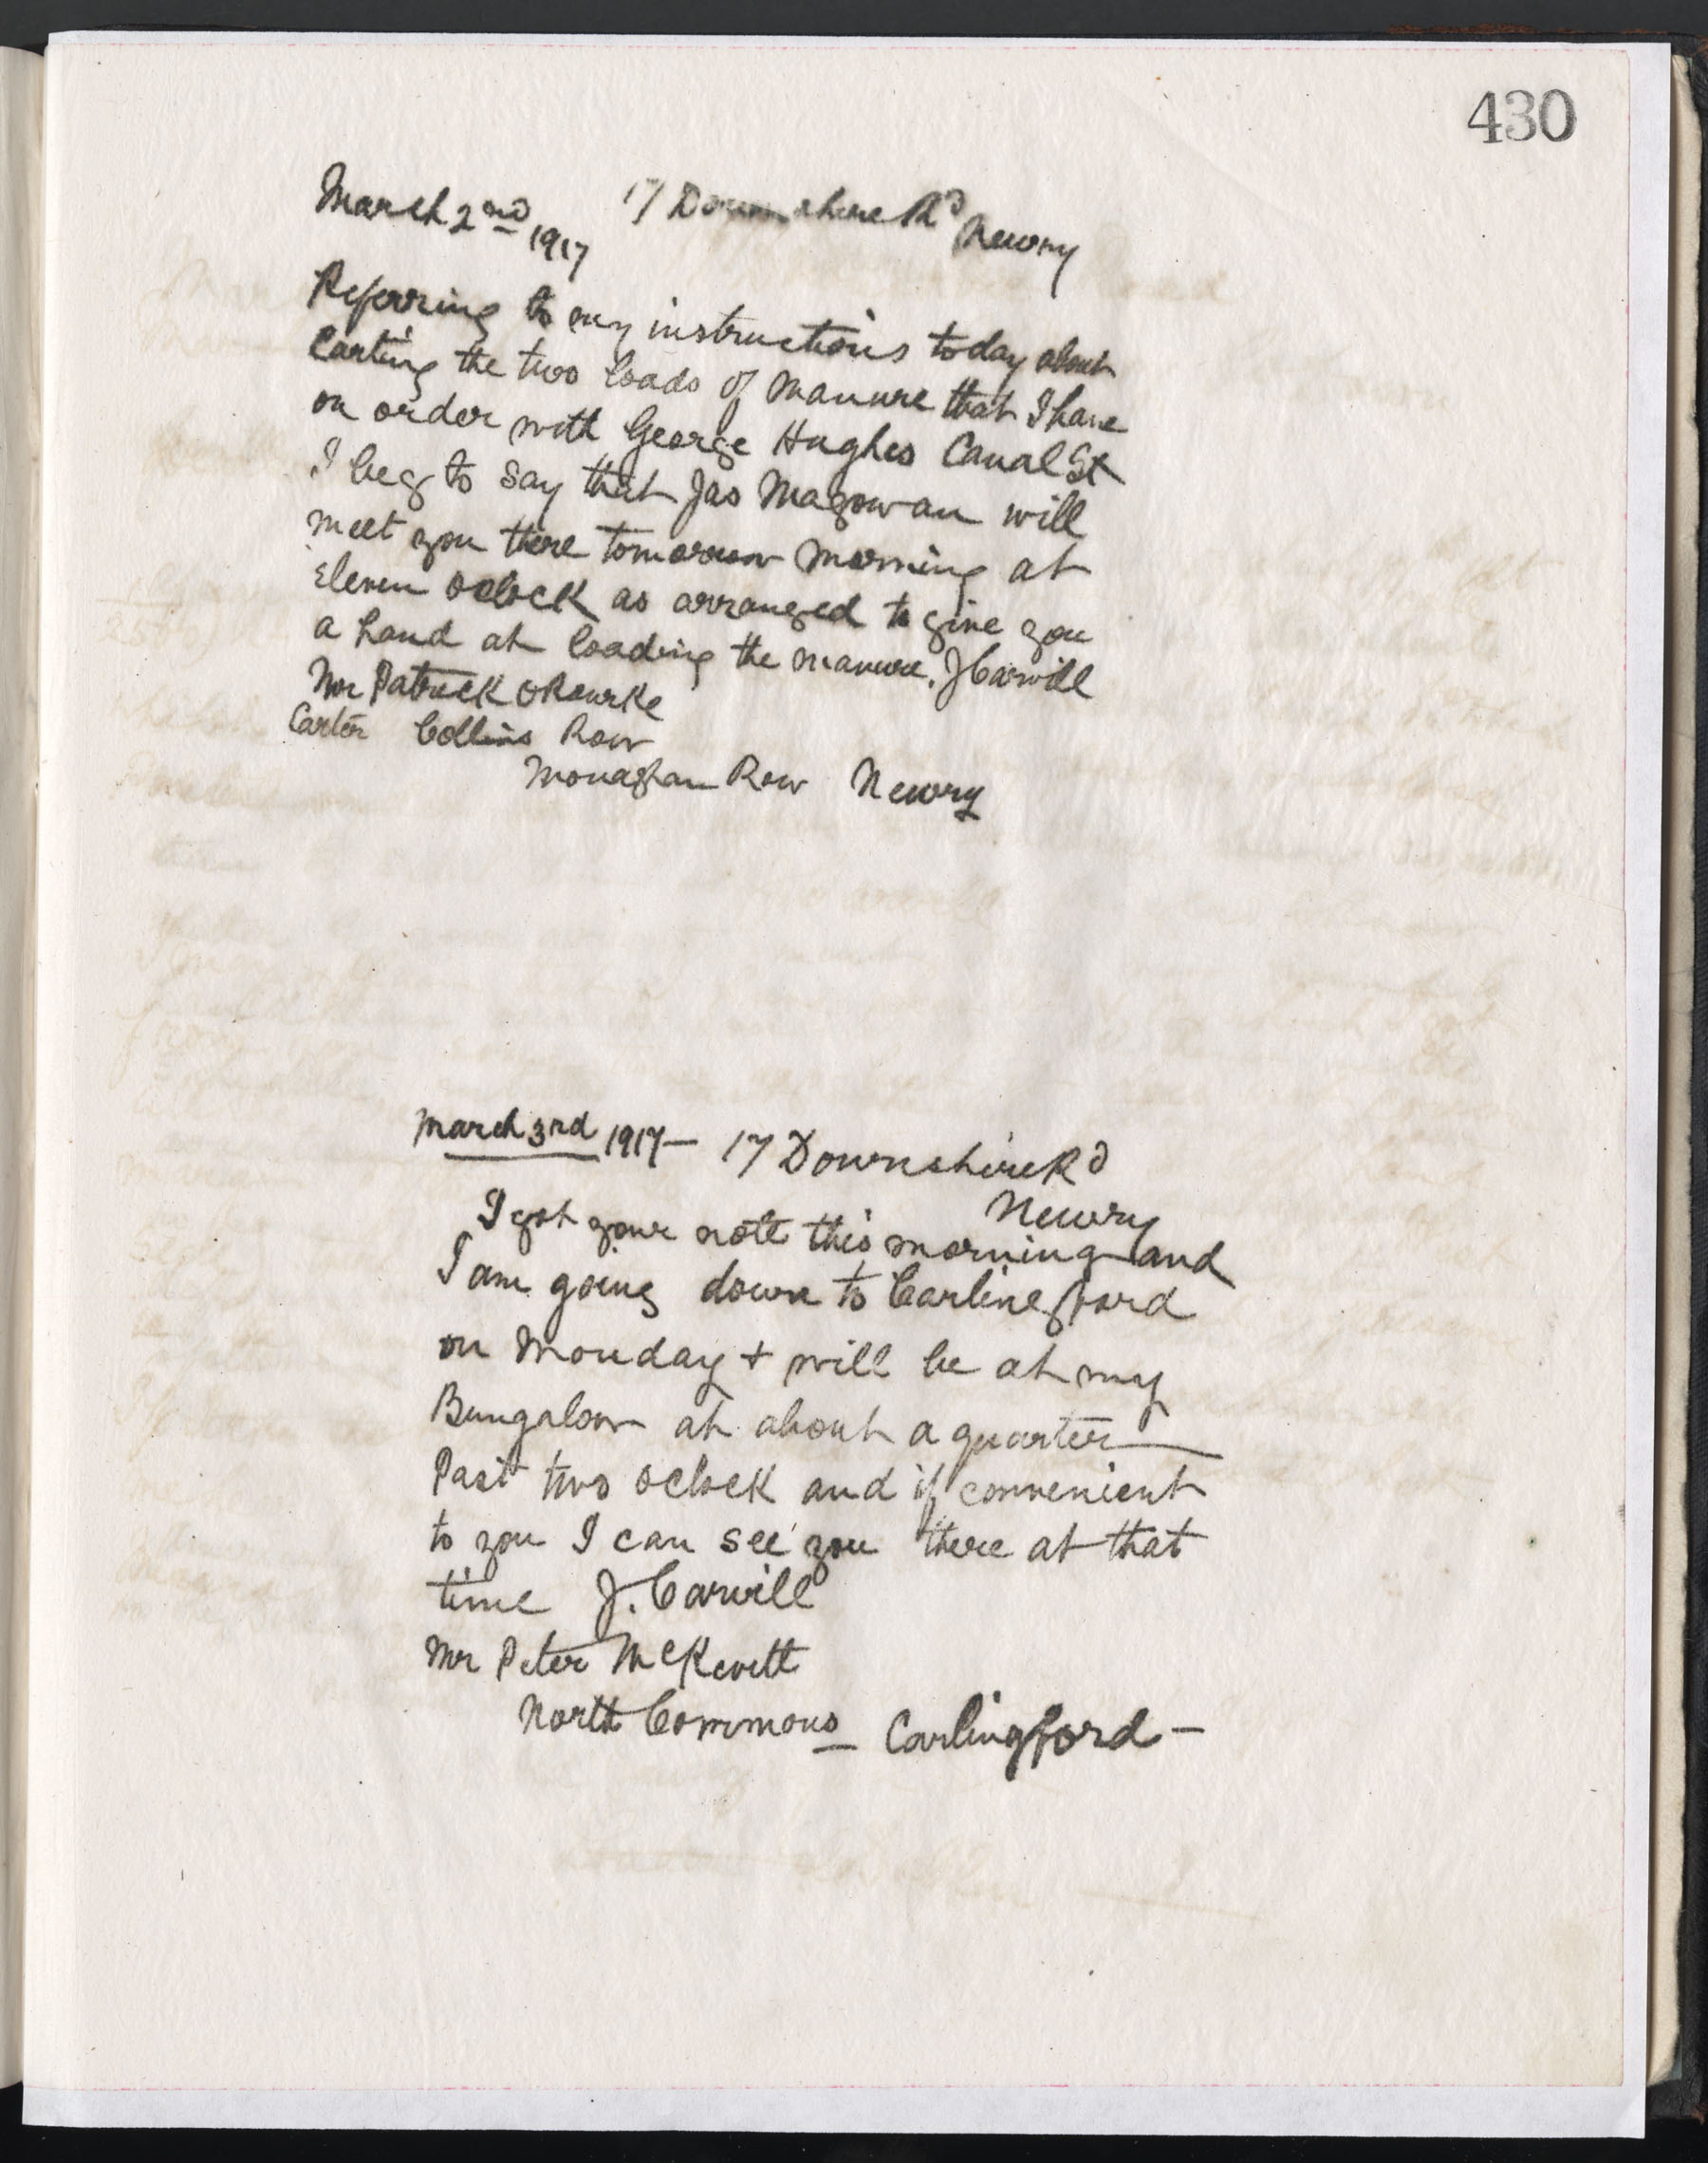 430
March 2nd 1917 17 Downshire Rd Newry
Referring to my instructions today about
Carting the two loads of manure that I have
on order with George Hughes Canal St
I beg to say that Jas Magowan will
meet you there tomorrow morning at
Eleven oclock as arranged to give you
a hand at loading the manure. J Carvill
Mr Patrick ORourke
Carter Collins Row
Monaghan Row Newry
March 3rd 1917 — 17 Downshire Rd
Newry
I got your note this morning and
I am going down to Carlingford
on Monday + will be at my
Bungalow at about a quarter
Past two oclock and if convenient
to you I can see you there at that
time J. Carvill
Mr Peter McKevitt
North Commons — Carlingford —